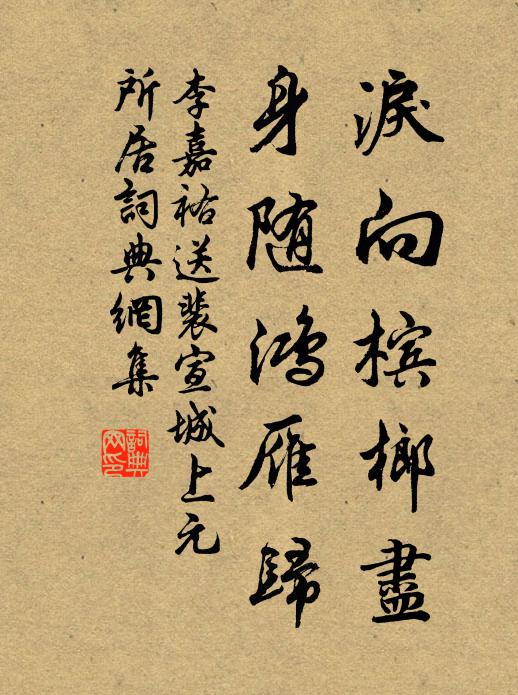 淚向檳榔盡
身随鴻雁歸
李嘉祐送裴宣城上元
所居詞典網集
詞典網印